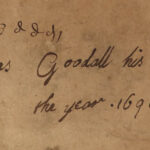 as Goodall his
the year . 169